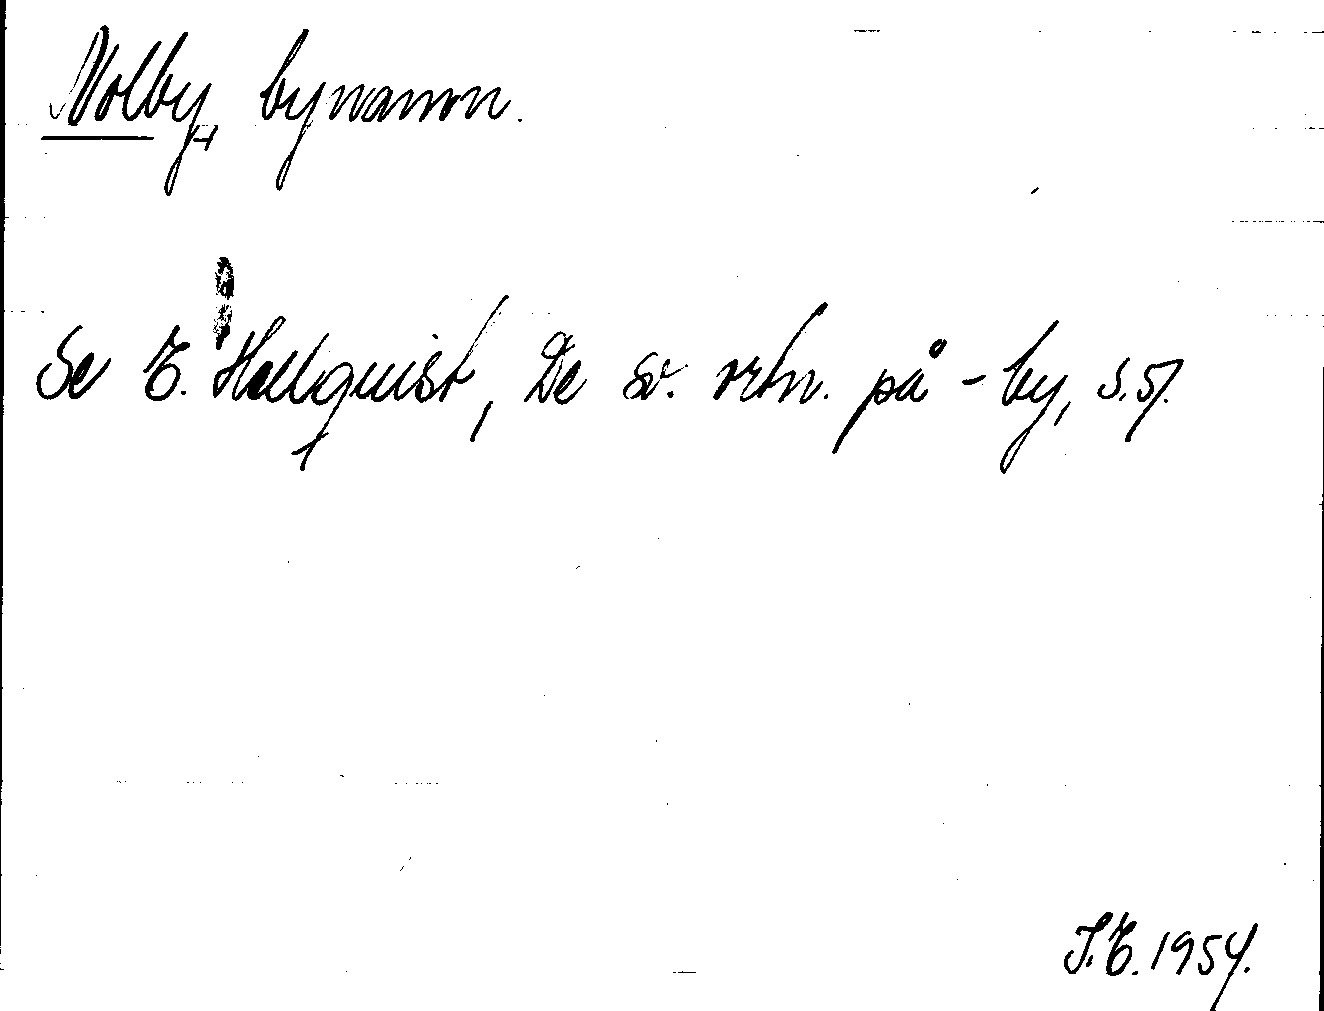 Nolby, bynamn.
Se E. Hellquist, De sv. ortn. på -by, s. 57.
S.E. 1954.